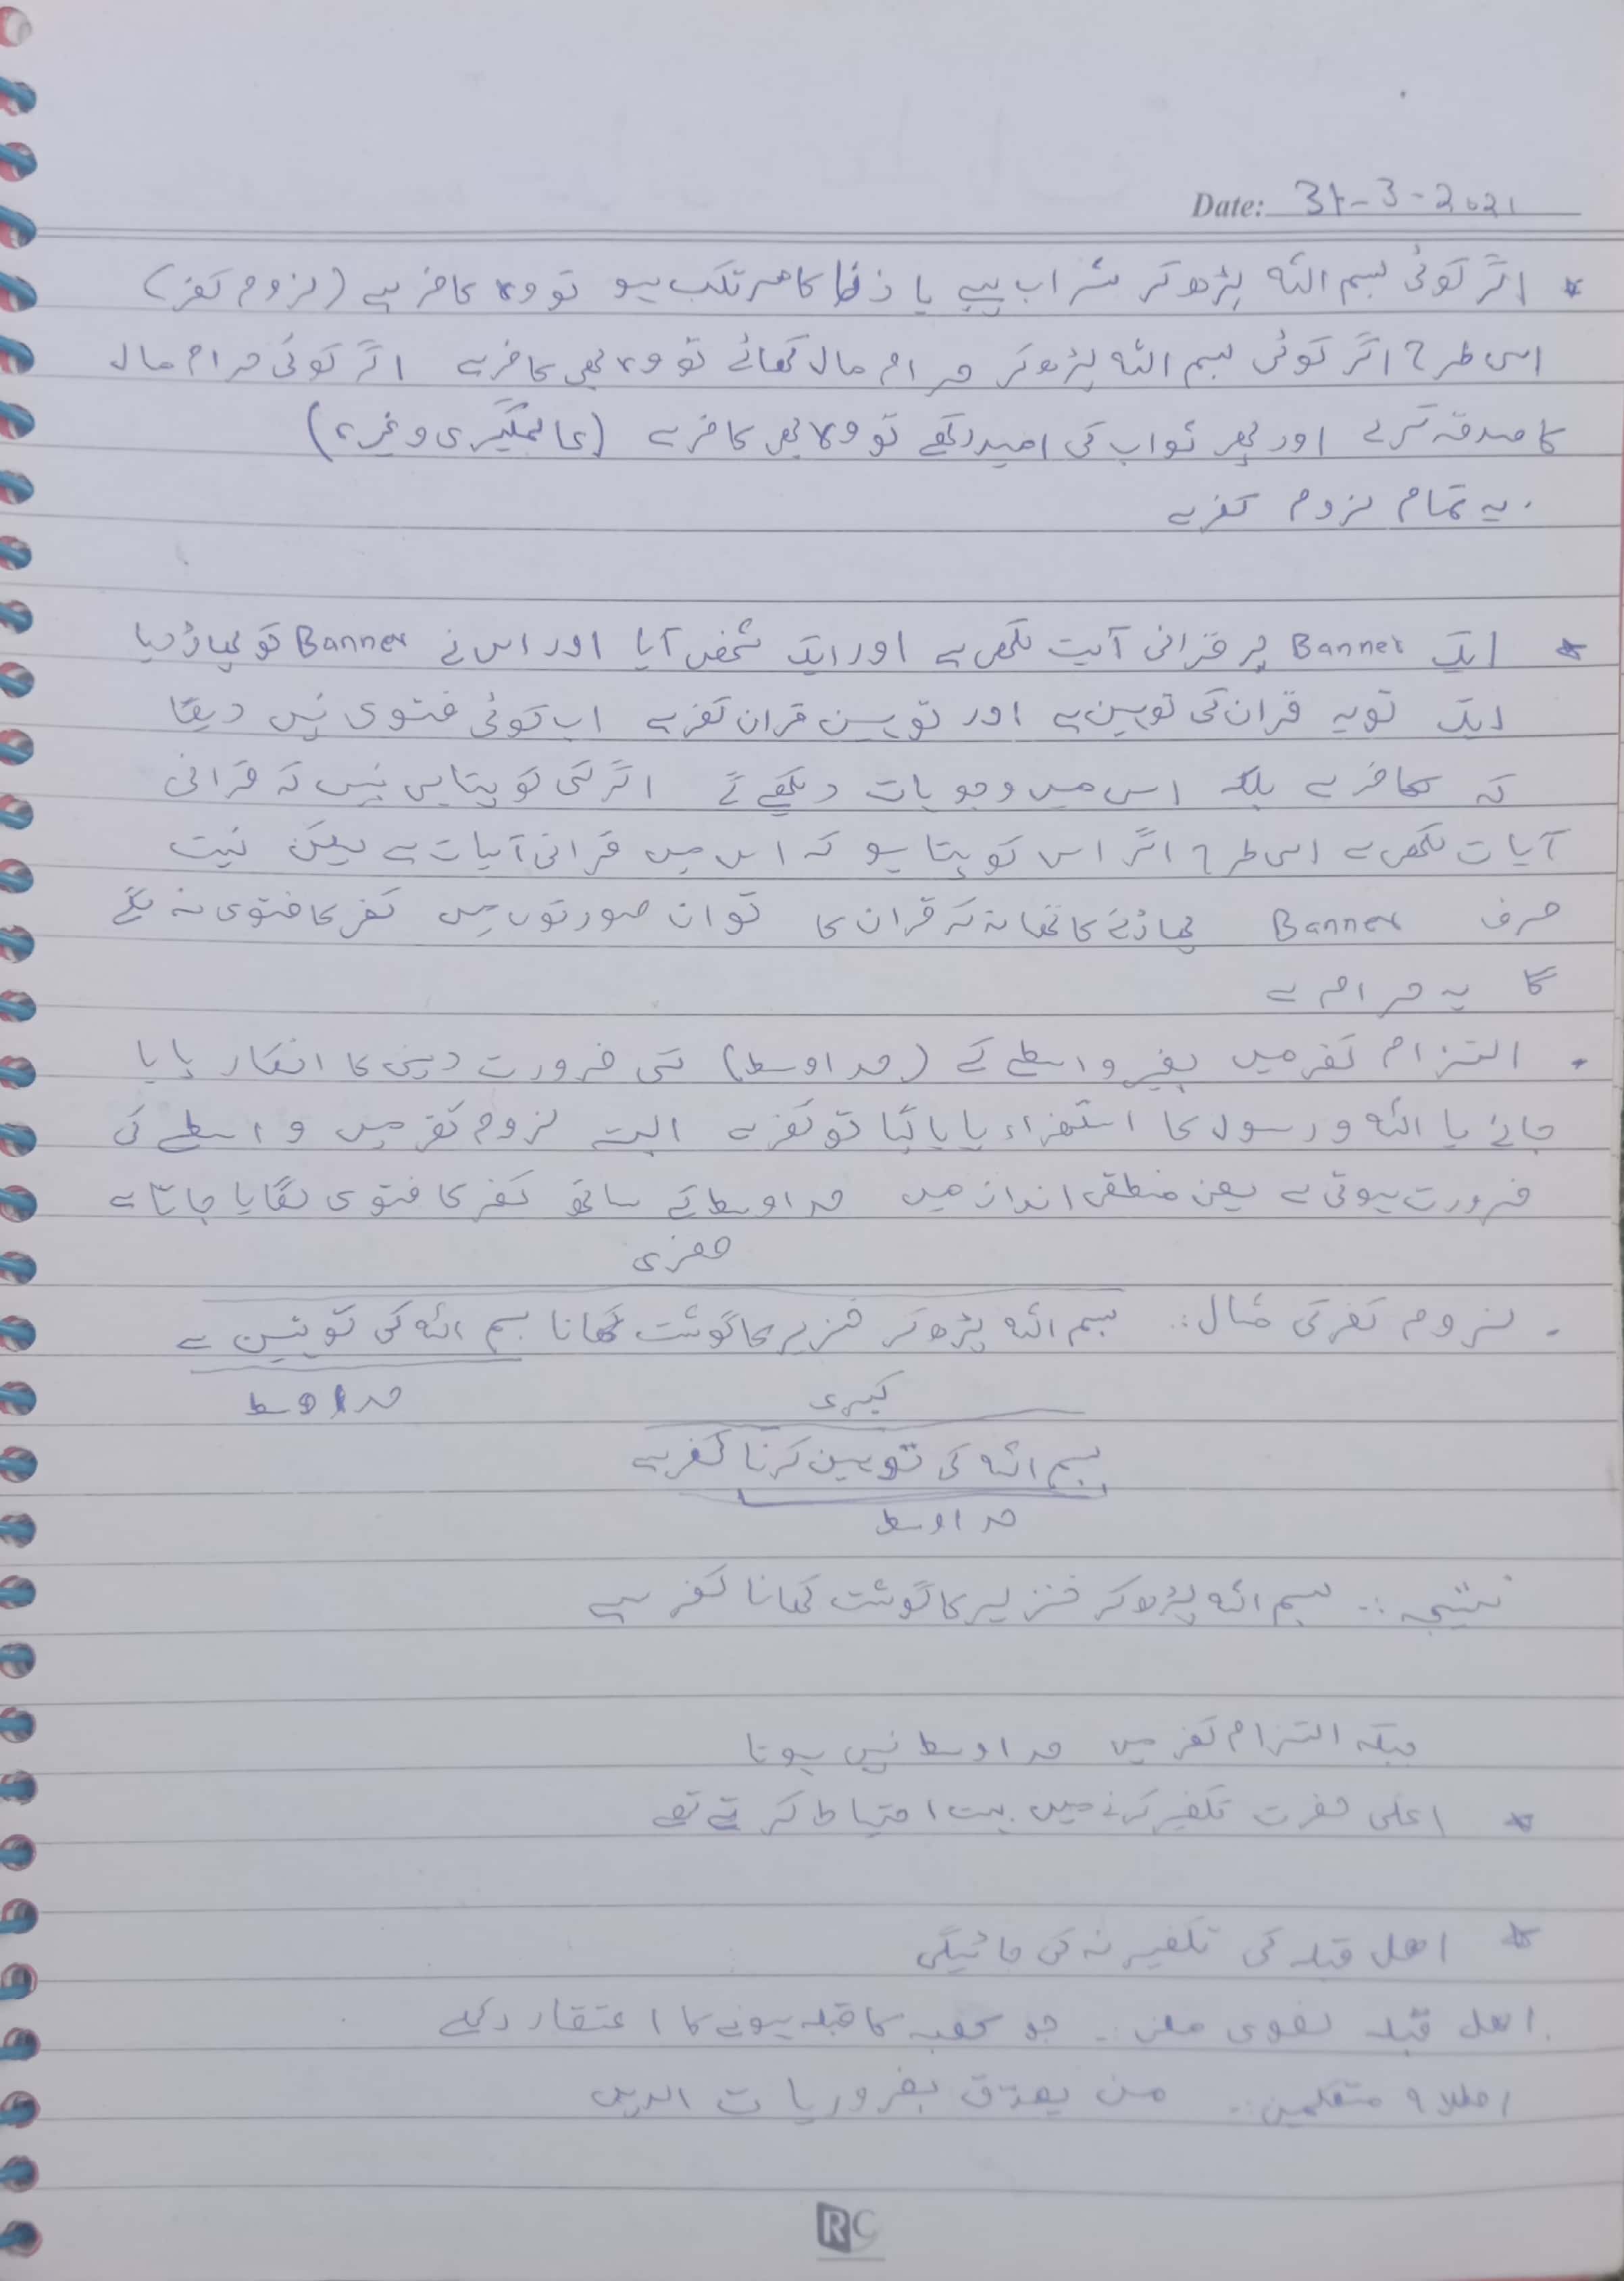 Date: 31-3-2021
* اگر کوئی بسم اللہ پڑھ کر شراب پیے یا زنا کا مرتکب ہو تو وہ کافر ہے (لزوم کفر)
اس طرح اگر کوئی بسم اللہ پڑھ کر حرام مال کھائے تو وہ بھی کافر ہے اگر کوئی حرام مال
کا صدقہ کرے اور پھر ثواب کی امید رکھے تو وہ بھی کافر ہے (عالمگیری وغیرہ)
. یہ تمام لزوم کفر ہے
* ایک Banner پر قرانی آیت لکھی ہے اور ایک شخص آیا اور اس نے Banner کو پھاڑ دیا
ایک تو یہ قران کی توہین ہے اور توہین قران کفر ہے اب کوئی فتوی نہیں دیگا
کہ کافر ہے بلکہ اس میں وجوہات دیکھے گے اگر کسی کو پتا ہی نہیں کہ قرانی
آیات لکھی ہے اسی طرح اگر اس کو پتا ہو کہ اس میں قرانی آیات ہے لیکن نیت
صرف Banner پھاڑنے کا تھا نہ کہ قران کا تو ان صورتوں میں کفر کا فتوی نہ لگے
گا یہ حرام ہے
. التزام کفر میں بغیر واسطے کے (حد اوسط) کسی ضرورت دینی کا انکار پایا
جائے یا اللہ و رسول کا استھزاء پایا گیا تو کفر ہے البتہ لزوم کفر میں واسطے کی
ضرورت ہوتی ہے یعنی منطقی انداز میں حد اوسط کے ساتھ کفر کا فتوی لگایا جاتا ہے
صغری
. لزوم کفر کی مثال:. بسم اللہ پڑھ کر خنزیر کا گوشت کھانا بسم اللہ کی توہین ہے
حد اوسط
کبری
بسم اللہ کی توہین کرنا کفر ہے
حد اوسط
نتیجہ :. بسم اللہ پڑھ کر خنزیر کا گوشت کھانا کفر ہے
جبکہ التزام کفر میں حد اوسط نہیں ہوتا
* اعلی حضرت تکفیر کرنے میں بہت احتیاط کرتے تھے
* اھل قبلہ کی تکفیر نہ کی جائیگی
. اھل قبلہ لغوی معنی :. جو کعبہ کا قبلہ ہونے کا اعتقاد رکھے
اصطلاح متکلمین:. من یصدق بضروریات الدین
RC